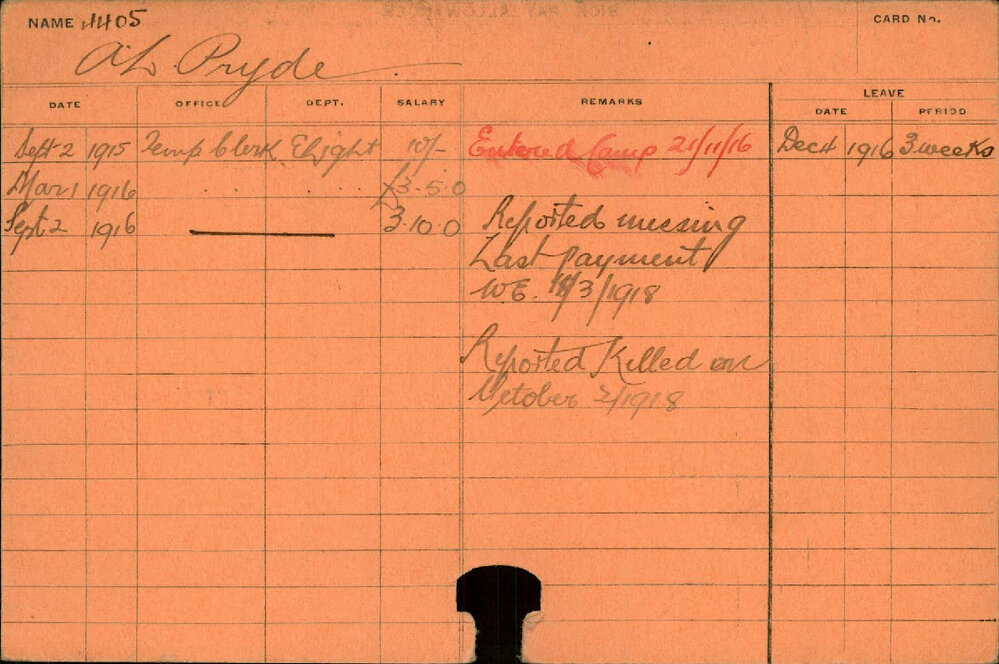 NAME 1405
CARD No.
A. L. Pryde
DATE OFFICE DEPT. SALARY REMARKS LEAVE
DATE PERIOD
Sept 2 1915 Temp Clerk E Light 10/- Entered Camp 21/11/16 Dec 4 1916 3 weeks
Mar 1 1916 . . . . . £3-5-0
Sept 2 1916 3.10.0 Reported missing
Last payment
W.E. /3/1918
Reported Killed on
October 2/1918